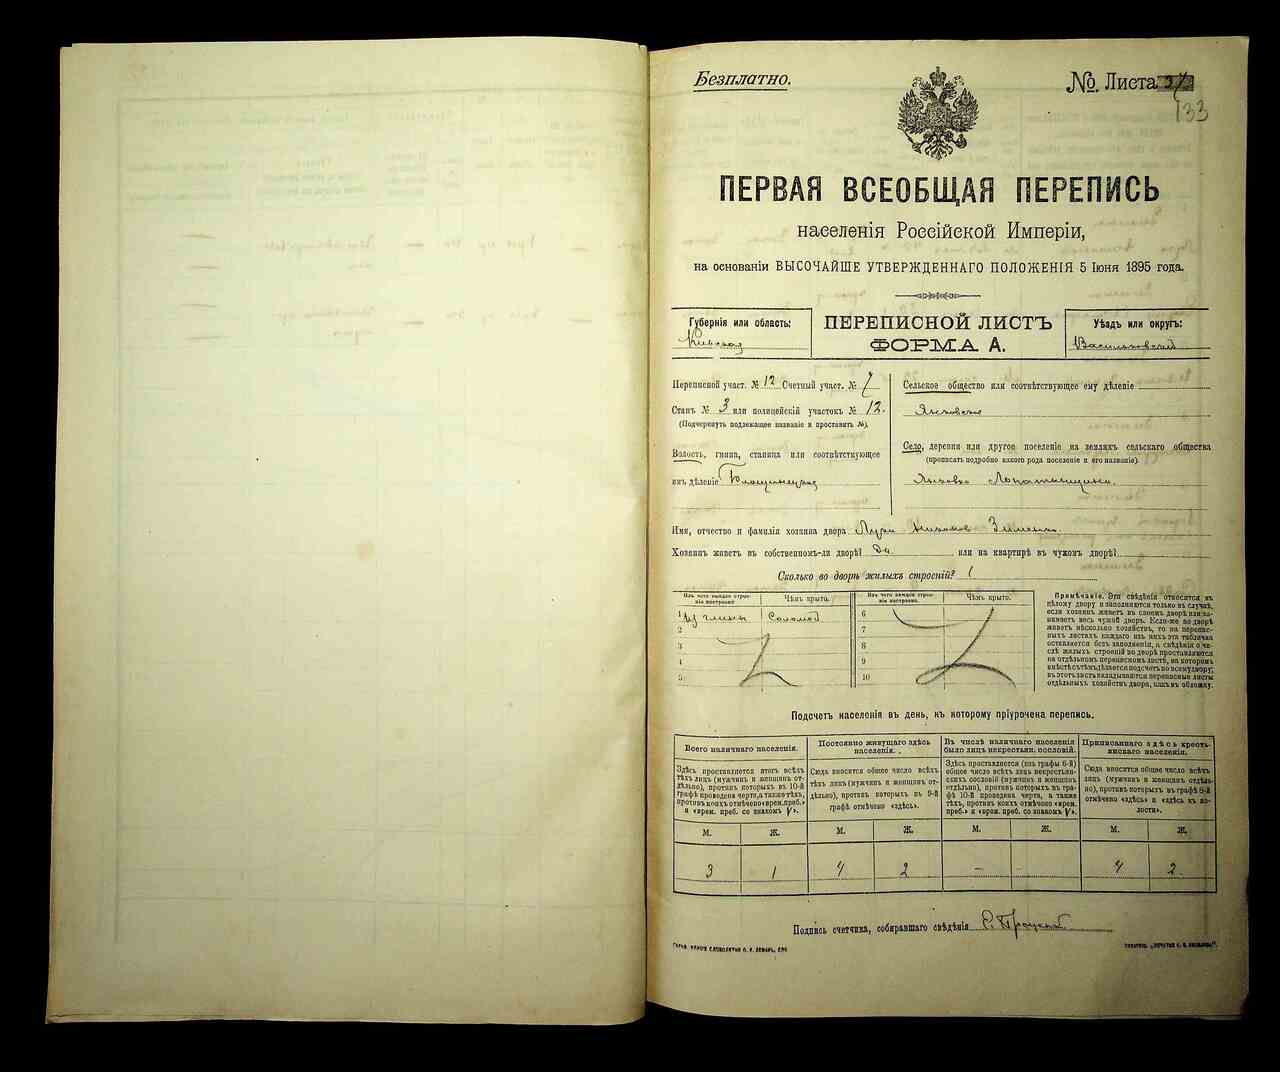 Безплатно.
№. Листа
133
ПЕРВАЯ ВСЕОБЩАЯ ПЕРЕПИСЬ
населенія Россійской Имперіи,
на основаніи ВЫСОЧАЙШЕ УТВЕРЖДЕННАГО ПОЛОЖЕНІЯ 5 Іюня 1895 года.
Губернія или область:
Кіевская
ПЕРЕПИСНОЙ ЛИСТЪ
ФОРМА А.
Уѣздъ или округъ:
Васильковскій
Переписной участ. № 12 Счетный участ. № 7
Станъ № 3 или полицейскій участокъ № 12.
(Подчеркнуть подлежащее названіе и проставить №).
Волость, гмина, станица или соотвѣтствующее
имъ дѣленіе
Сельское общество или соотвѣтствующее ему дѣленіе
Село, деревня или другое поселеніе на земляхъ сельскаго общества
(прописать подробно какого рода поселеніе и его названіе).
Имя, отчество и фамилія хозяина двора
Хозяинъ живетъ въ собственномъ-ли дворѣ? Да или на квартирѣ въ чужомъ дворѣ?
Сколько во дворѣ жилыхъ строеній? 1
Изъ чего каждое строеніе построено. Чѣмъ крыто.
1 Изъ глины Соломой
2
3
4
5
Изъ чего каждое строеніе построено. Чѣмъ крыто.
6
7
8
9
10
Примѣчаніе. Эти свѣдѣнія относятся къ
цѣлому двору и заполняются только въ случаѣ,
если хозяинъ живетъ въ своемъ дворѣ или занимаетъ
весь чужой дворъ. Если-же во дворѣ
живетъ нѣсколько хозяйствъ, то на переписныхъ
листахъ каждаго изъ нихъ эта табличка
оставляется безъ заполненія, а свѣдѣнія о числѣ
жилыхъ строеній во дворѣ проставляются
на отдѣльномъ переписномъ листѣ, на которомъ
вмѣстѣ съ тѣмъ дѣлается подсчетъ по всему двору;
въ этотъ листъ вкладываются переписные листы
отдѣльныхъ хозяйствъ двора, какъ въ обложку.
Подсчетъ населенія въ день, къ которому пріурочена перепись.
Всего наличнаго населенія.
Здѣсь проставляется итогъ всѣхъ
тѣхъ лицъ (мужчинъ и женщинъ отдѣльно),
противъ которыхъ въ 10-й
графѣ проведена черта, а также тѣхъ,
противъ коихъ отмѣчено «врем. преб.»
и «врем. преб. со знакомъ V».
Постоянно живущаго здѣсь
населенія.
Сюда вносится общее число всѣхъ
тѣхъ лицъ (мужчинъ и женщинъ отдѣльно),
противъ которыхъ въ 9-й
графѣ отмѣчено «здѣсь».
Въ числѣ наличнаго населенія
было лицъ некрестьян. сословій.
Здѣсь проставляется (изъ графы 6-й)
общее число всѣхъ лицъ некрестьянскихъ
сословій (мужчинъ и женщинъ
отдѣльно), противъ которыхъ въ графѣ
10-й проведена черта, а также
тѣхъ, противъ коихъ отмѣчено «врем.
преб.» и «врем. преб. со знакомъ V».
Приписаннаго здѣсь крестьянскаго
населенія.
Сюда вносится общее число всѣхъ
лицъ (мужчинъ и женщинъ отдѣльно),
противъ которыхъ въ графѣ 8-й
отмѣчено «здѣсь» и «здѣсь къ волости».
М. Ж. М. Ж. М. Ж. М. Ж.
3 1 4 2 — — 4 2
Подпись счетчика, собиравшаго свѣдѣнія